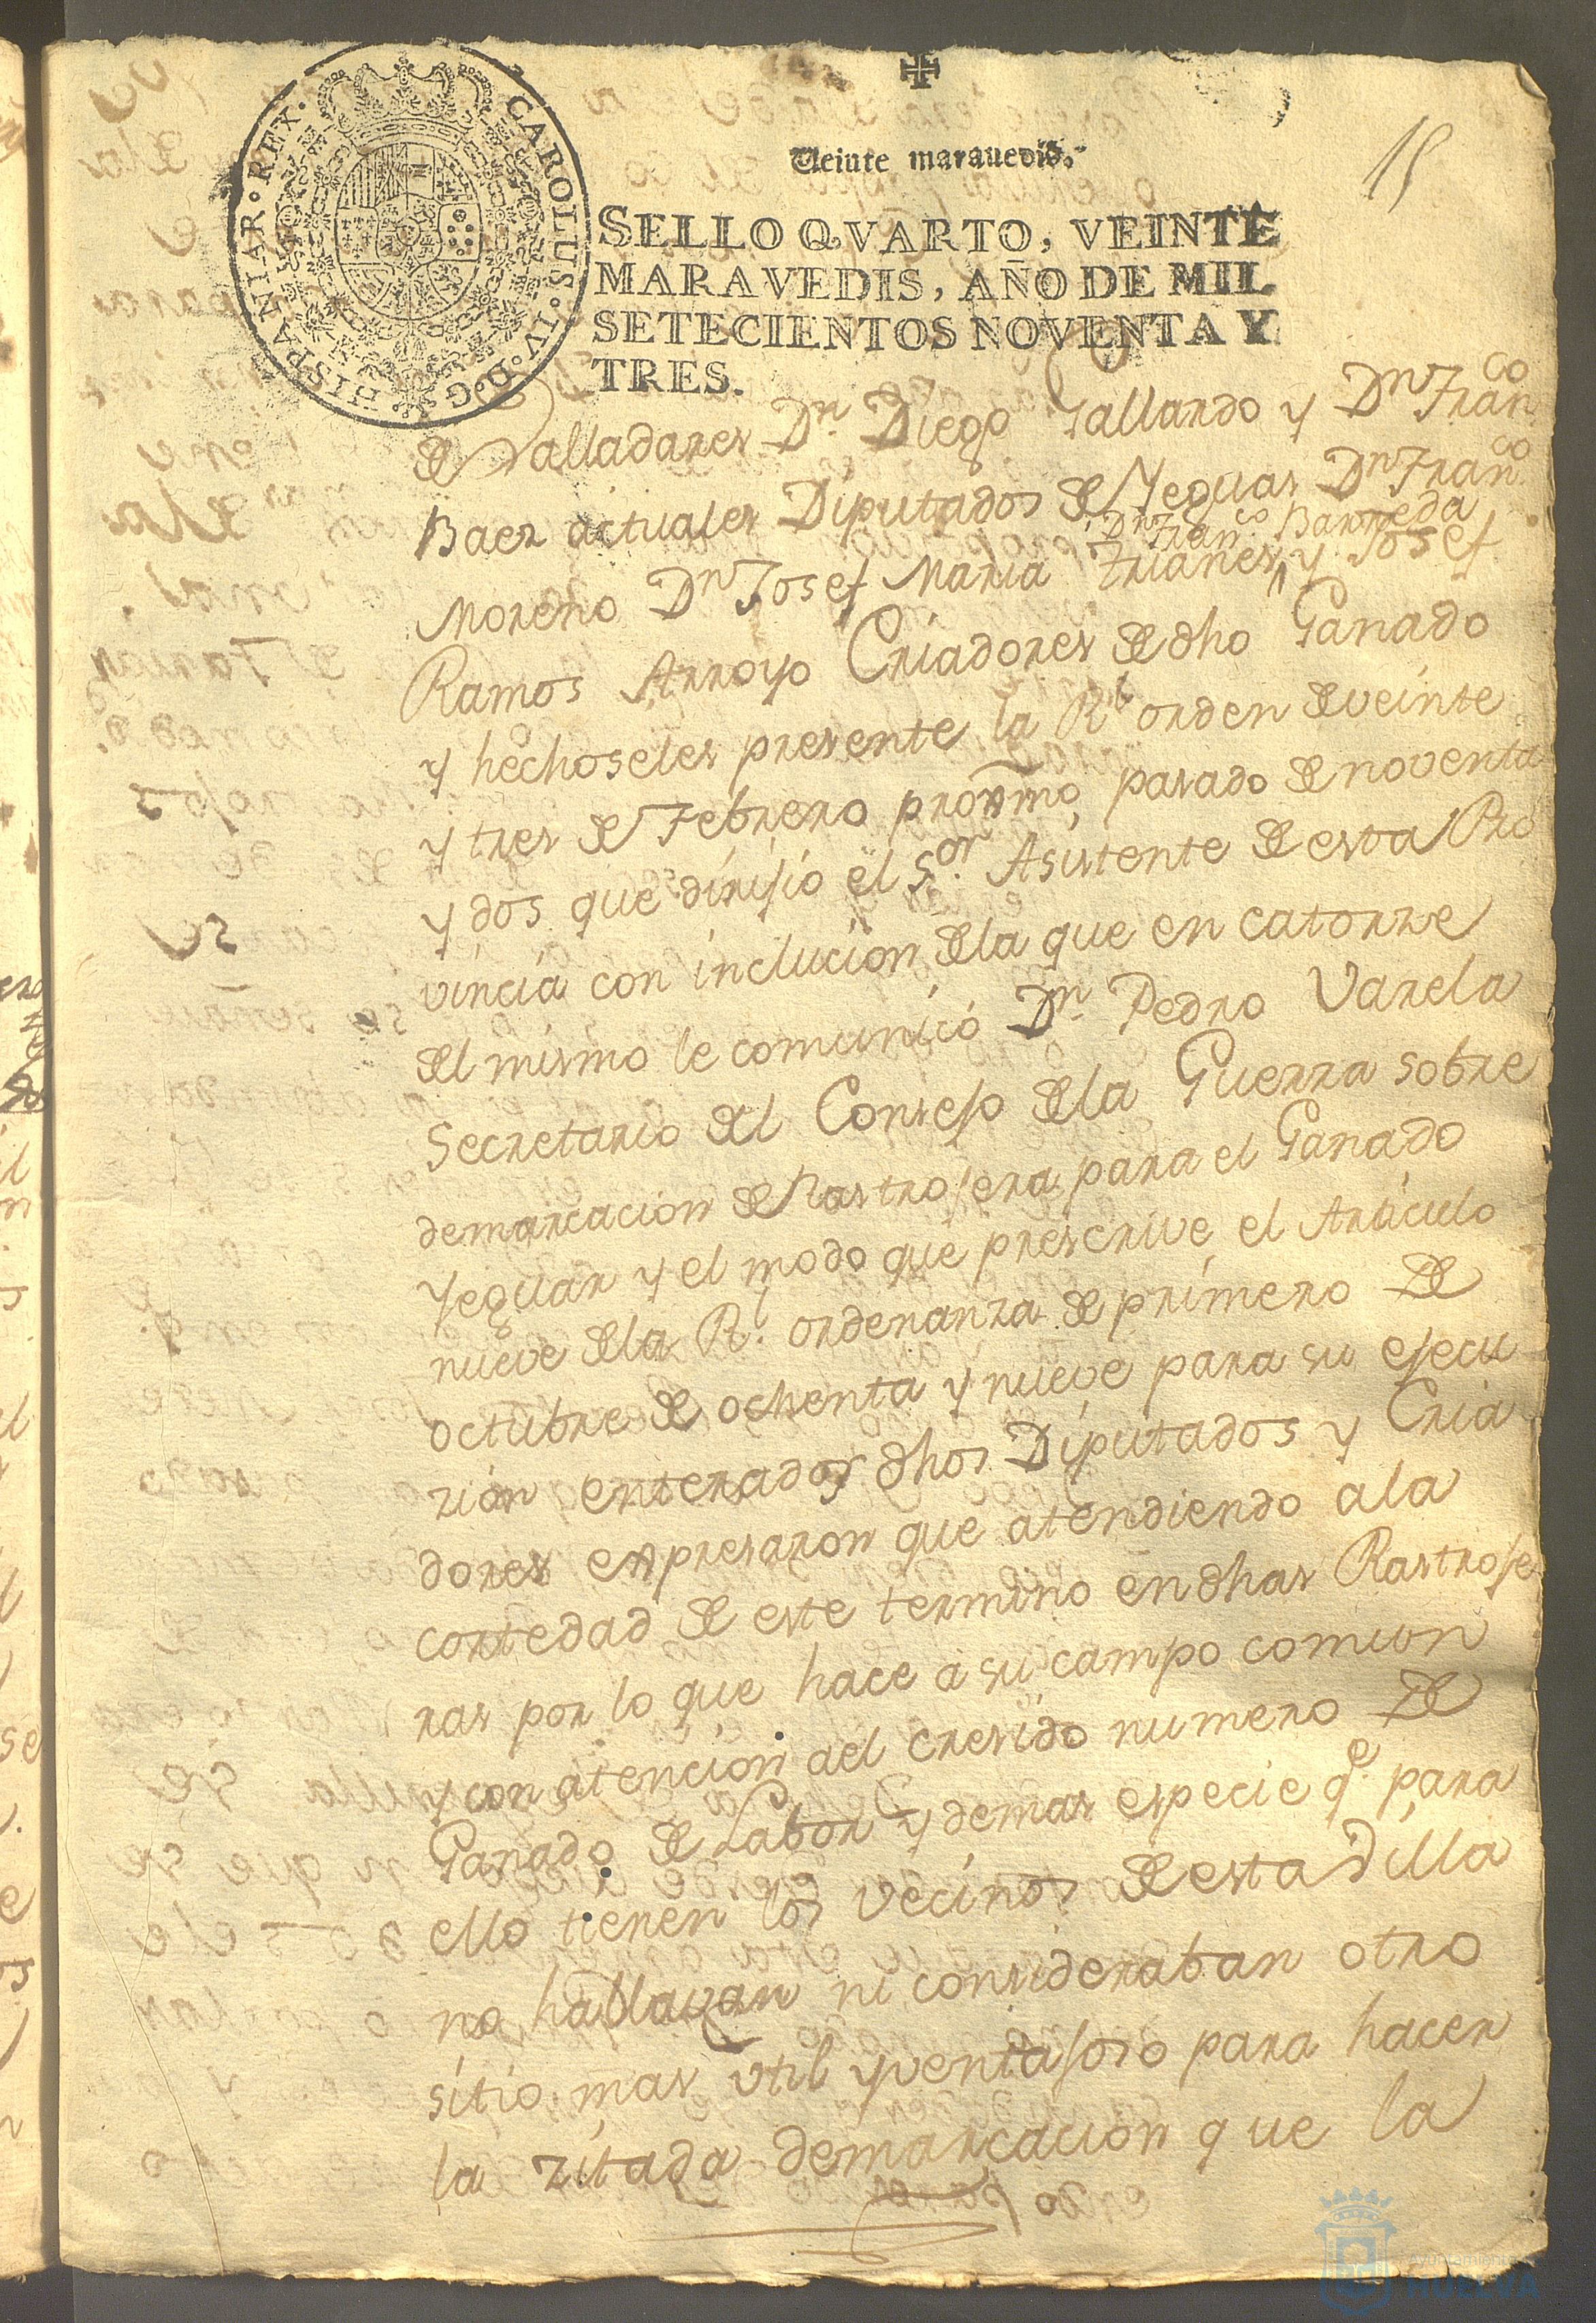 CAROLUS · IV · D · G · HISPANIAR · REX ·
15
Veinte maravedis.
SELLO QVARTO, VEINTE
MARAVEDIS, AÑO DE MIL
SETECIENTOS NOVENTA Y
TRES.
de Valladares Dn. Diego Gallardo y Dn Franco
Baez actuales Diputados de Yeguas Dn Franco
Dn Franco Barreda
Moreno Dn Josef Maria Trianes ^ y Josef
Ramos Arroyo Criadores de dho Ganado
y hechoseles presente la Rl orden de veinte
y tres de Febrero proximo pasado de noventa
y dos que dirijio el Sor. Asistente de esta Pro
vincia con inclucion de la que en catorze
del mismo le comunicó Dn. Pedro Varela
Secretario del Consejo de la Guerra sobre
demarcacion de Rastrojera para el Ganado
Yeguar y el modo que prescrive el Articulo
nueve de la Rl. ordenanza de primero de
octubre de ochenta y nueve para su ejecu
zion enterados dhos Diputados y Cria
dores expresaron que atendiendo a la
cortedad de este termino en dhas Rastroje
ras por lo que hace a su campo comun
y con atencion ael cresido numero de
Ganado de Labor y demas especie qe. para
ello tienen los vecinos de esta Villa
no hallavan ni consideraban otro
sitio mas util y ventajoso para hacer
la zitada demarcacion que la
Ayuntamiento
HUELVA